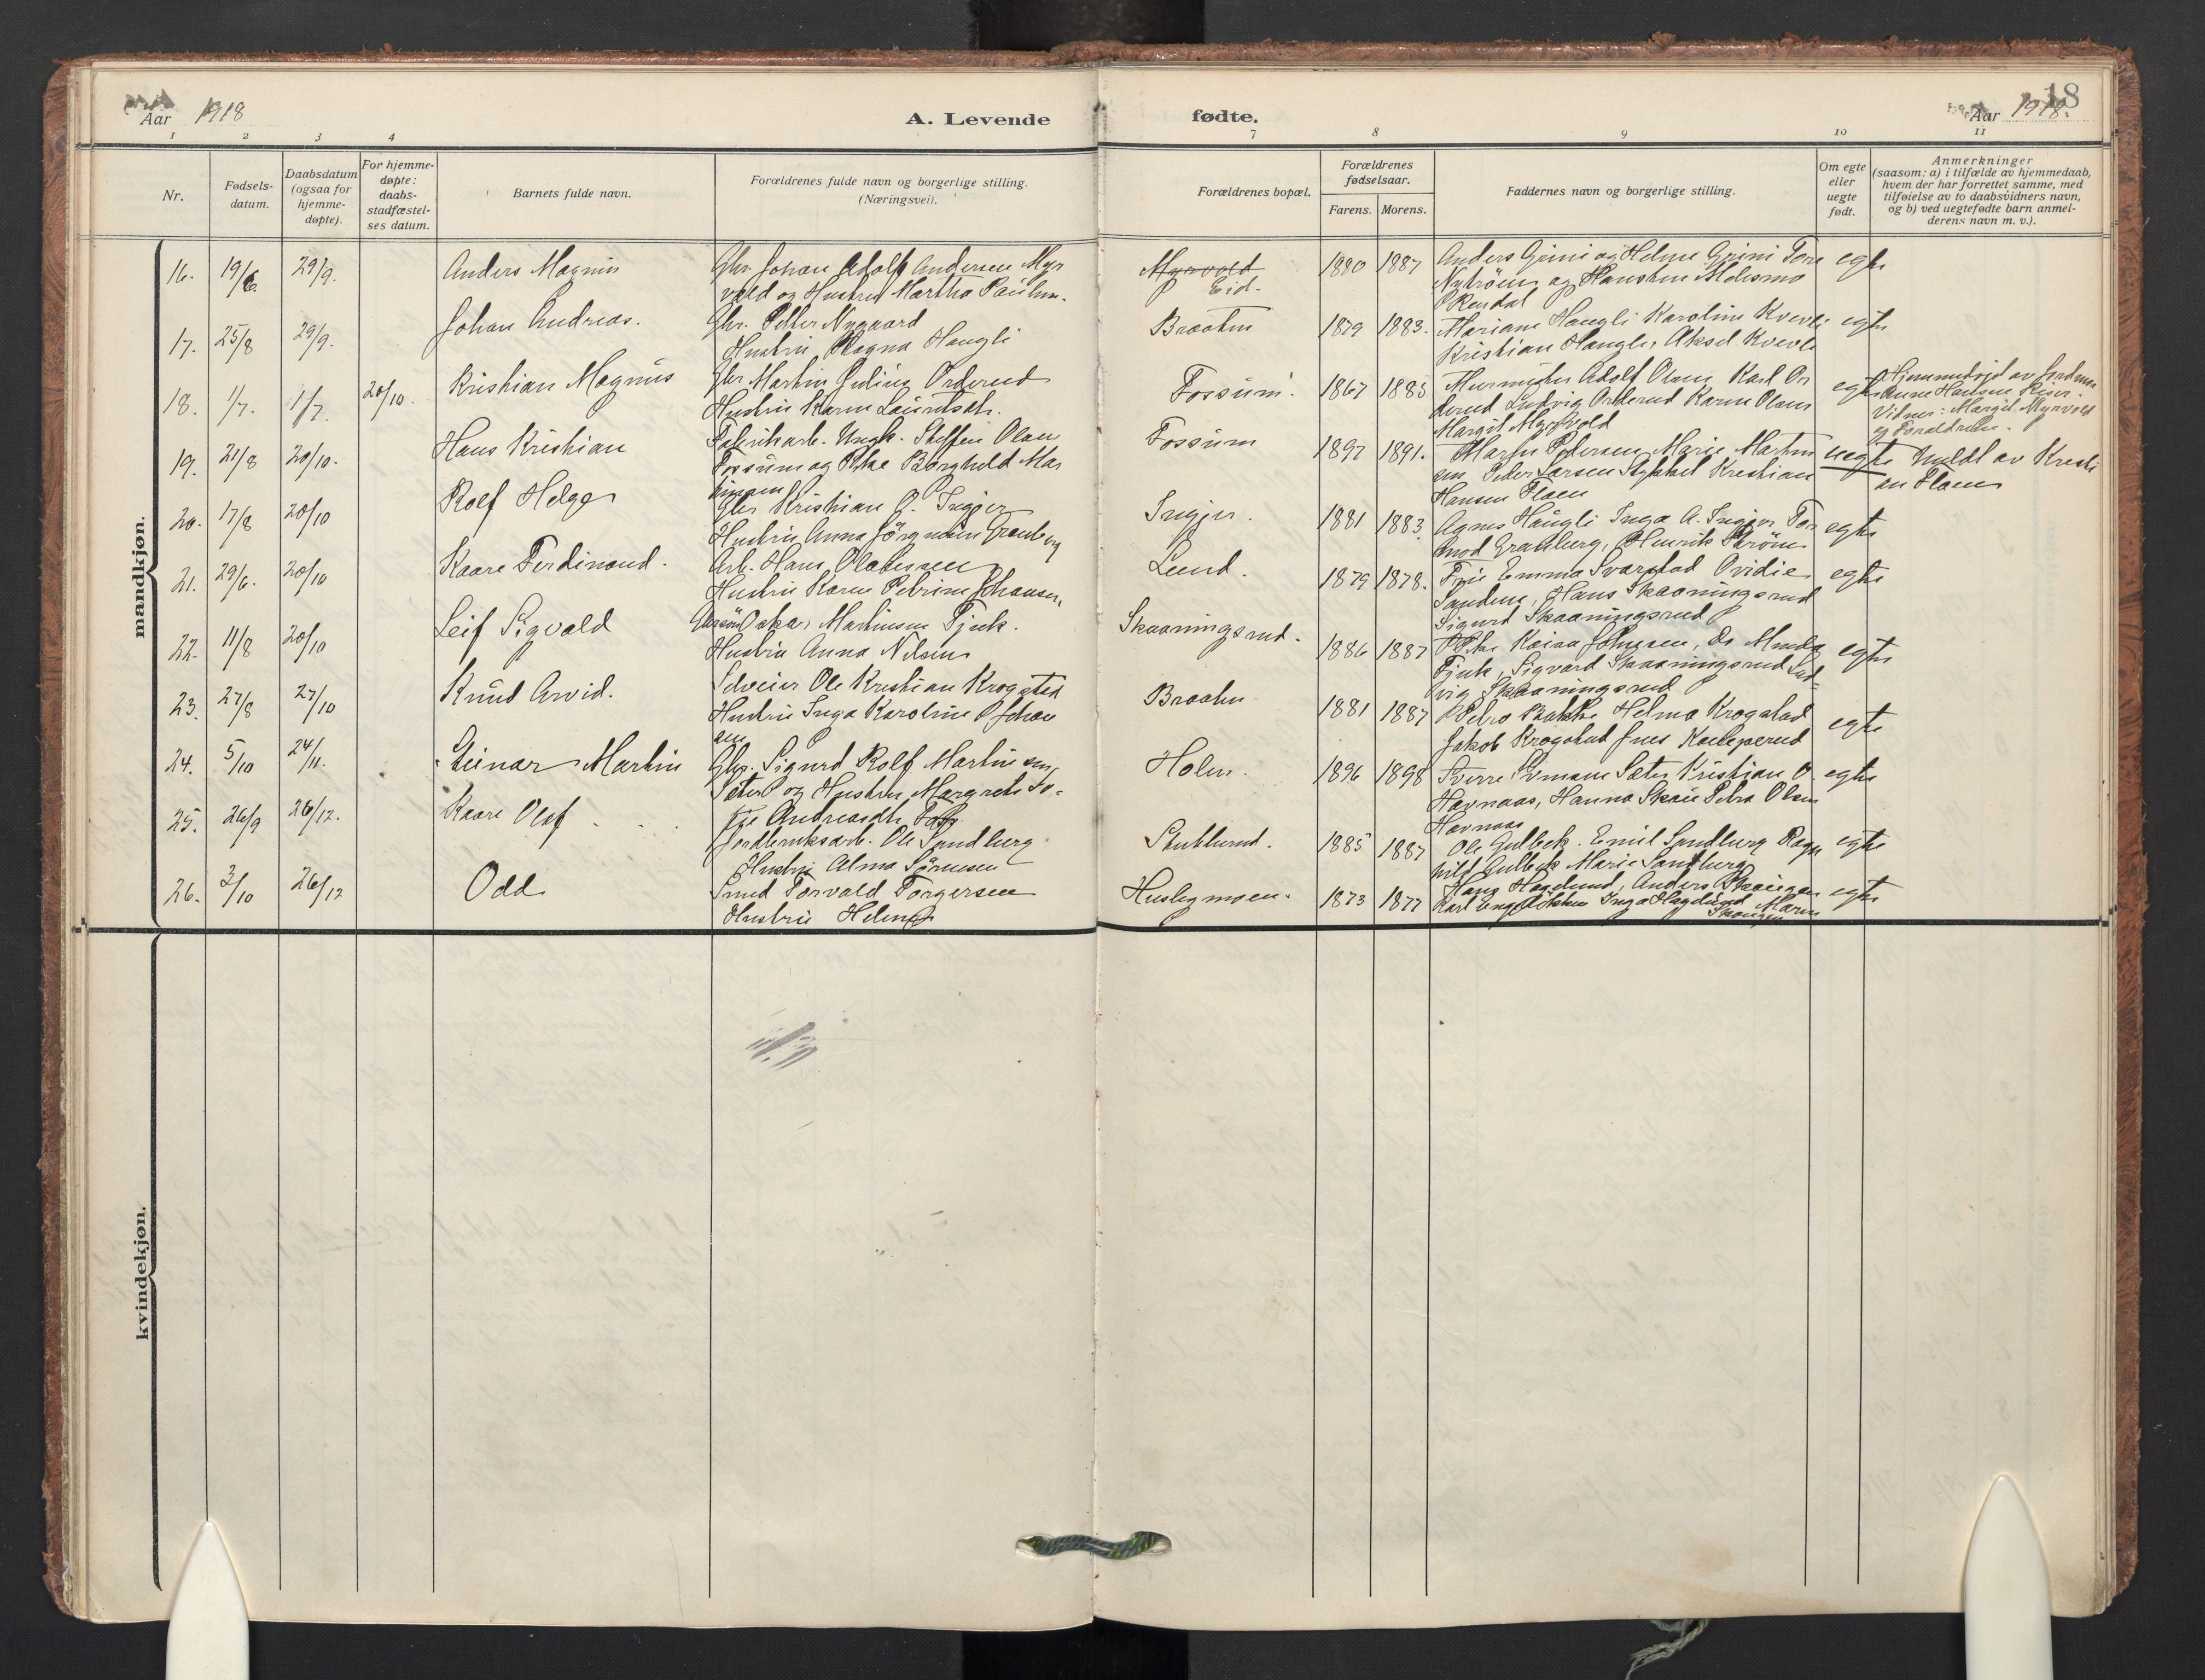 18
Aar 1918
A. Levende
fødte.
Aar 1918.
1 2 3 4 7 8 9 10 11
Nr.
Fødsels-
datum.
Daabsdatum
(ogsaa for
hjemme-
døpte).
For hjemme-
døpte:
daabs-
stadfæstel-
ses datum.
Barnets fulde navn.
Forældrenes fulde navn og borgerlige stilling.
(Næringsvei).
Forældrenes bopæl.
Forældrenes
fødselsaar.
Farens. Morens.
Faddernes navn og borgerlige stilling.
Om egte
eller
uegte
født.
Anmerkninger
(saasom: a) i tilfælde av hjemmedaab,
hvem der har forrettet samme, med
tilføielse av to daabsvidners navn,
og b) ved uegtefødte barn anmel-
derens navn m. v.).
mandkjøn.
16. 19/6. 29/9. Anders Magnus
Gbr. Johan Adolf Andersen Myr
vold og Hustru Martha Paulsen.
Myrvold
Eid.
1880 1887
Anders Grini og Helene Grini Tore
Nyhröen og Hanshen
Rendal
egte
17. 25/8 29/9. Johan Andreas.
Gbr. Petter Nygaard
Hustru Magna Haugli
Braaten
1879 1883.
Mariane Haugli Karoline Kverli
Kristian Haugli, Aksel Kverli
egte
18. 1/7. 1/7. 20/10. Kristian Magnus
Gbr. Martin Julius Orderud
Hustru Karen Lauritsdtr.
Fossum.
1867 1885
Murmester Adolf Olsen Karl Or
derud Ludvig Orderud Karen Olsen
Margit Myrvold
egte
Hjemmedøpt av Jordmor
Anne Hansen Riser.
Vidner: Margit Myrvold
og Forældrene.
19. 21/8 20/10. Hans Kristian
Fabrikarb. Ungk. Steffen Olsen
Fossum og Pike Borghild Mar
tinsen
Fossum
1897 1891.
Martin Pedersen Marie Martin
sen Peder Larsen Stykket Kristian
Hansen Floen
uegte
Meldt av Kristi
an Floen
20. 17/8 20/10 Rolf Helge
Gbr. Kristian A. Ingjer
Hustru Anna Jörgensen Granberg
Ingjer.
1881 1883.
Agnes Haugli Inga A. Ingjer Tor
mod Granberg, Henrik Strøm
egte
21. 29/6. 20/10 Kaare Ferdinand.
Arb. Hans Olausen
Hustru Karen Petrine Johansen.
Lund.
1879 1878.
Frue Emma Svarstad Ovidie
Sandene, Hans Skaaningsrud
Sigurd Skaaningsrud
egte
22. 11/8 20/10 Leif Sigvald
Oskar Martinsen Tjuk.
Hustru Anna Nilsen
Skaaningsrud.
1886 1887
Pike Kaisa Johnsen, Do Minda
Tjuk, Sigvard Skaaningsrud Lud-
vig Skaaningsrud
egte
23. 27/8 27/10 Knud Arvid.
Selveier Ole Kristian Krogstad
Hustru Inga Karoline Johan
sen
Braaten
1881 1887
Petra Bakke Helma Krogstad
Jakob Krogstad Jens Kallperud
egte
24. 5/10 24/11. Einar Martin
Gbr. Sigurd Rolf Martinsen
Sæter og Hustru Margrete So-
fie Andreasdtr.
Holm.
1896 1898
Sverre Simensen Sæter Kristian O.
Havnaas, Hanna Skaue Petra Olsen
Havnaas
egte
25. 26/9 26/12. Kaare Olaf
Jordbruksarb. Ole Sandberg
Hustru Alma Sörensen
Stublund.
1885 1887
Ole Gulbek. Emil Sandberg Ragn
hild Gulbek Marie Sandberg
egte
26. 3/10 26/12 Odd
Smed Torvald Torgersen
Hustru Helene
Huslegmoen.
1873 1877
Hans Hagelund, Anders Skaugen
Karl Engeløkken Inga Hagelund Maren
Skaugen
egte
kvindekjøn.